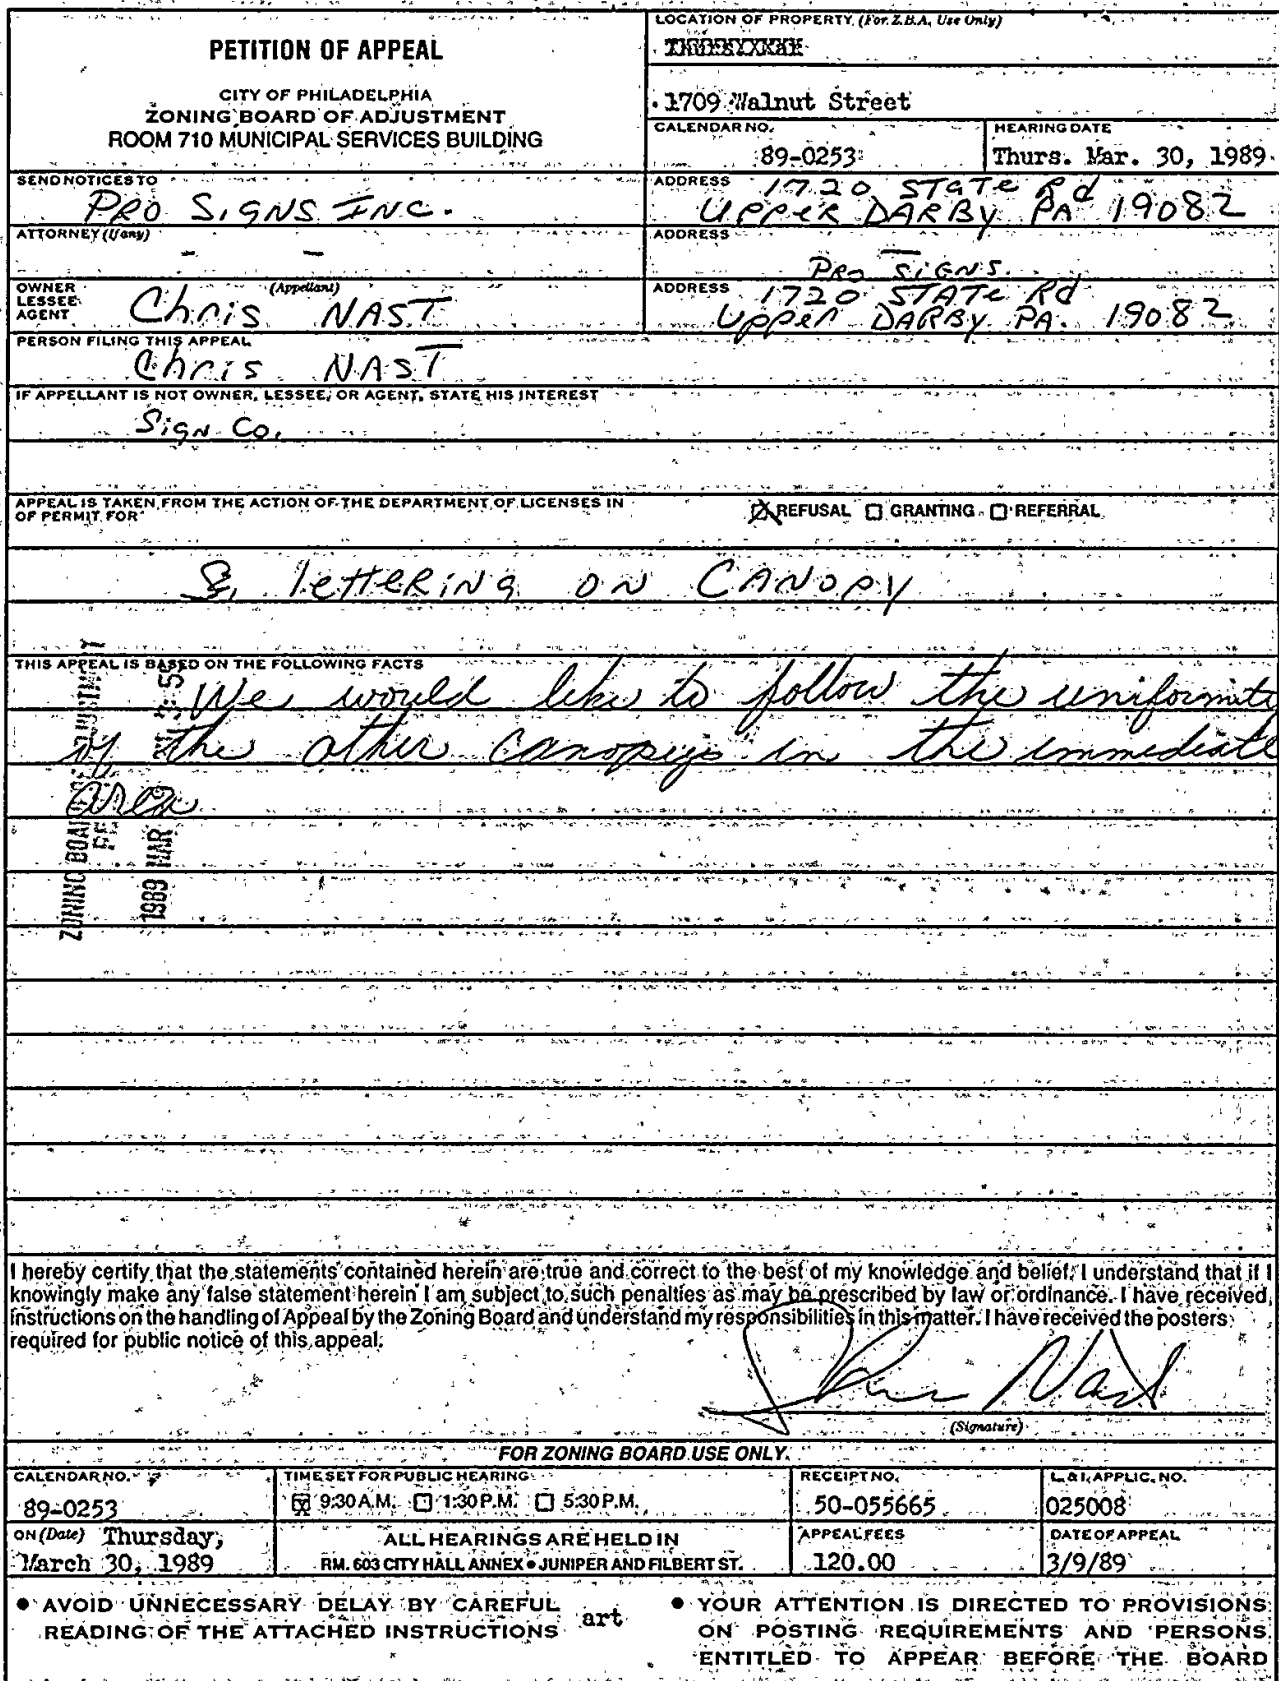 PETITION OF APPEAL
CITY OF PHILADELPHIA
ZONING BOARD OF ADJUSTMENT
ROOM 710 MUNICIPAL SERVICES BUILDING
LOCATION OF PROPERTY (For Z.B.A. Use Only)
1709 Walnut Street
CALENDAR NO.
89-0253
HEARING DATE
Thurs. Mar. 30, 1989
SEND NOTICES TO
PRO SIGNS INC.
ADDRESS
1720 STATE Rd
UPPER DARBY PA 19082
ATTORNEY (if any)
- -
ADDRESS
OWNER
LESSEE
AGENT
(Appellant)
Chris NAST
PRO SIGNS.
ADDRESS
1720 STATE Rd
Upper DARBY PA. 19082
PERSON FILING THIS APPEAL
Chris NAST
IF APPELLANT IS NOT OWNER, LESSEE, OR AGENT, STATE HIS INTEREST
Sign Co.
APPEAL IS TAKEN FROM THE ACTION OF THE DEPARTMENT OF LICENSES IN
OF PERMIT FOR
REFUSAL GRANTING REFERRAL
letteRiNg ON CANOPY
THIS APPEAL IS BASED ON THE FOLLOWING FACTS
We would like to follow the uniformity
of the other canopys in the immediate
area
ZONING BOARD
1989 MAR
I hereby certify that the statements contained herein are true and correct to the best of my knowledge and belief. I understand that if I
knowingly make any false statement herein I am subject to such penalties as may be prescribed by law or ordinance. I have received
instructions on the handling of Appeal by the Zoning Board and understand my responsibilities in this matter. I have received the posters
required for public notice of this appeal.
Chris Nast
(Signature)
FOR ZONING BOARD USE ONLY.
CALENDAR NO.
89-0253
TIME SET FOR PUBLIC HEARING
9:30 A.M. 1:30 P.M. 5:30 P.M.
RECEIPT NO.
50-055665
L. & I. APPLIC. NO.
025008
ON (Date) Thursday,
March 30, 1989
ALL HEARINGS ARE HELD IN
RM. 603 CITY HALL ANNEX • JUNIPER AND FILBERT ST.
APPEAL FEES
120.00
DATE OF APPEAL
3/9/89
• AVOID UNNECESSARY DELAY BY CAREFUL
READING OF THE ATTACHED INSTRUCTIONS
art
• YOUR ATTENTION IS DIRECTED TO PROVISIONS
ON POSTING REQUIREMENTS AND PERSONS
ENTITLED TO APPEAR BEFORE THE BOARD